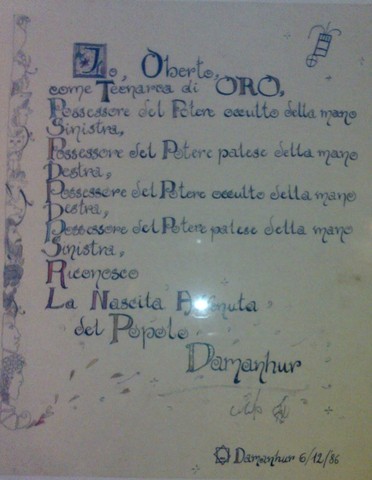 Io, Oberto,
come Tecnarca di ORO,
Possessore del Potere occulto della mano
Sinistra,
Possessore del Potere palese della mano
Destra,
Possessore del Potere occulto della mano
Destra,
Possessore del Potere palese della mano
Sinistra,
Riconosco
La Nascita Avvenuta
del Popolo
Damanhur
Damanhur 6/12/86